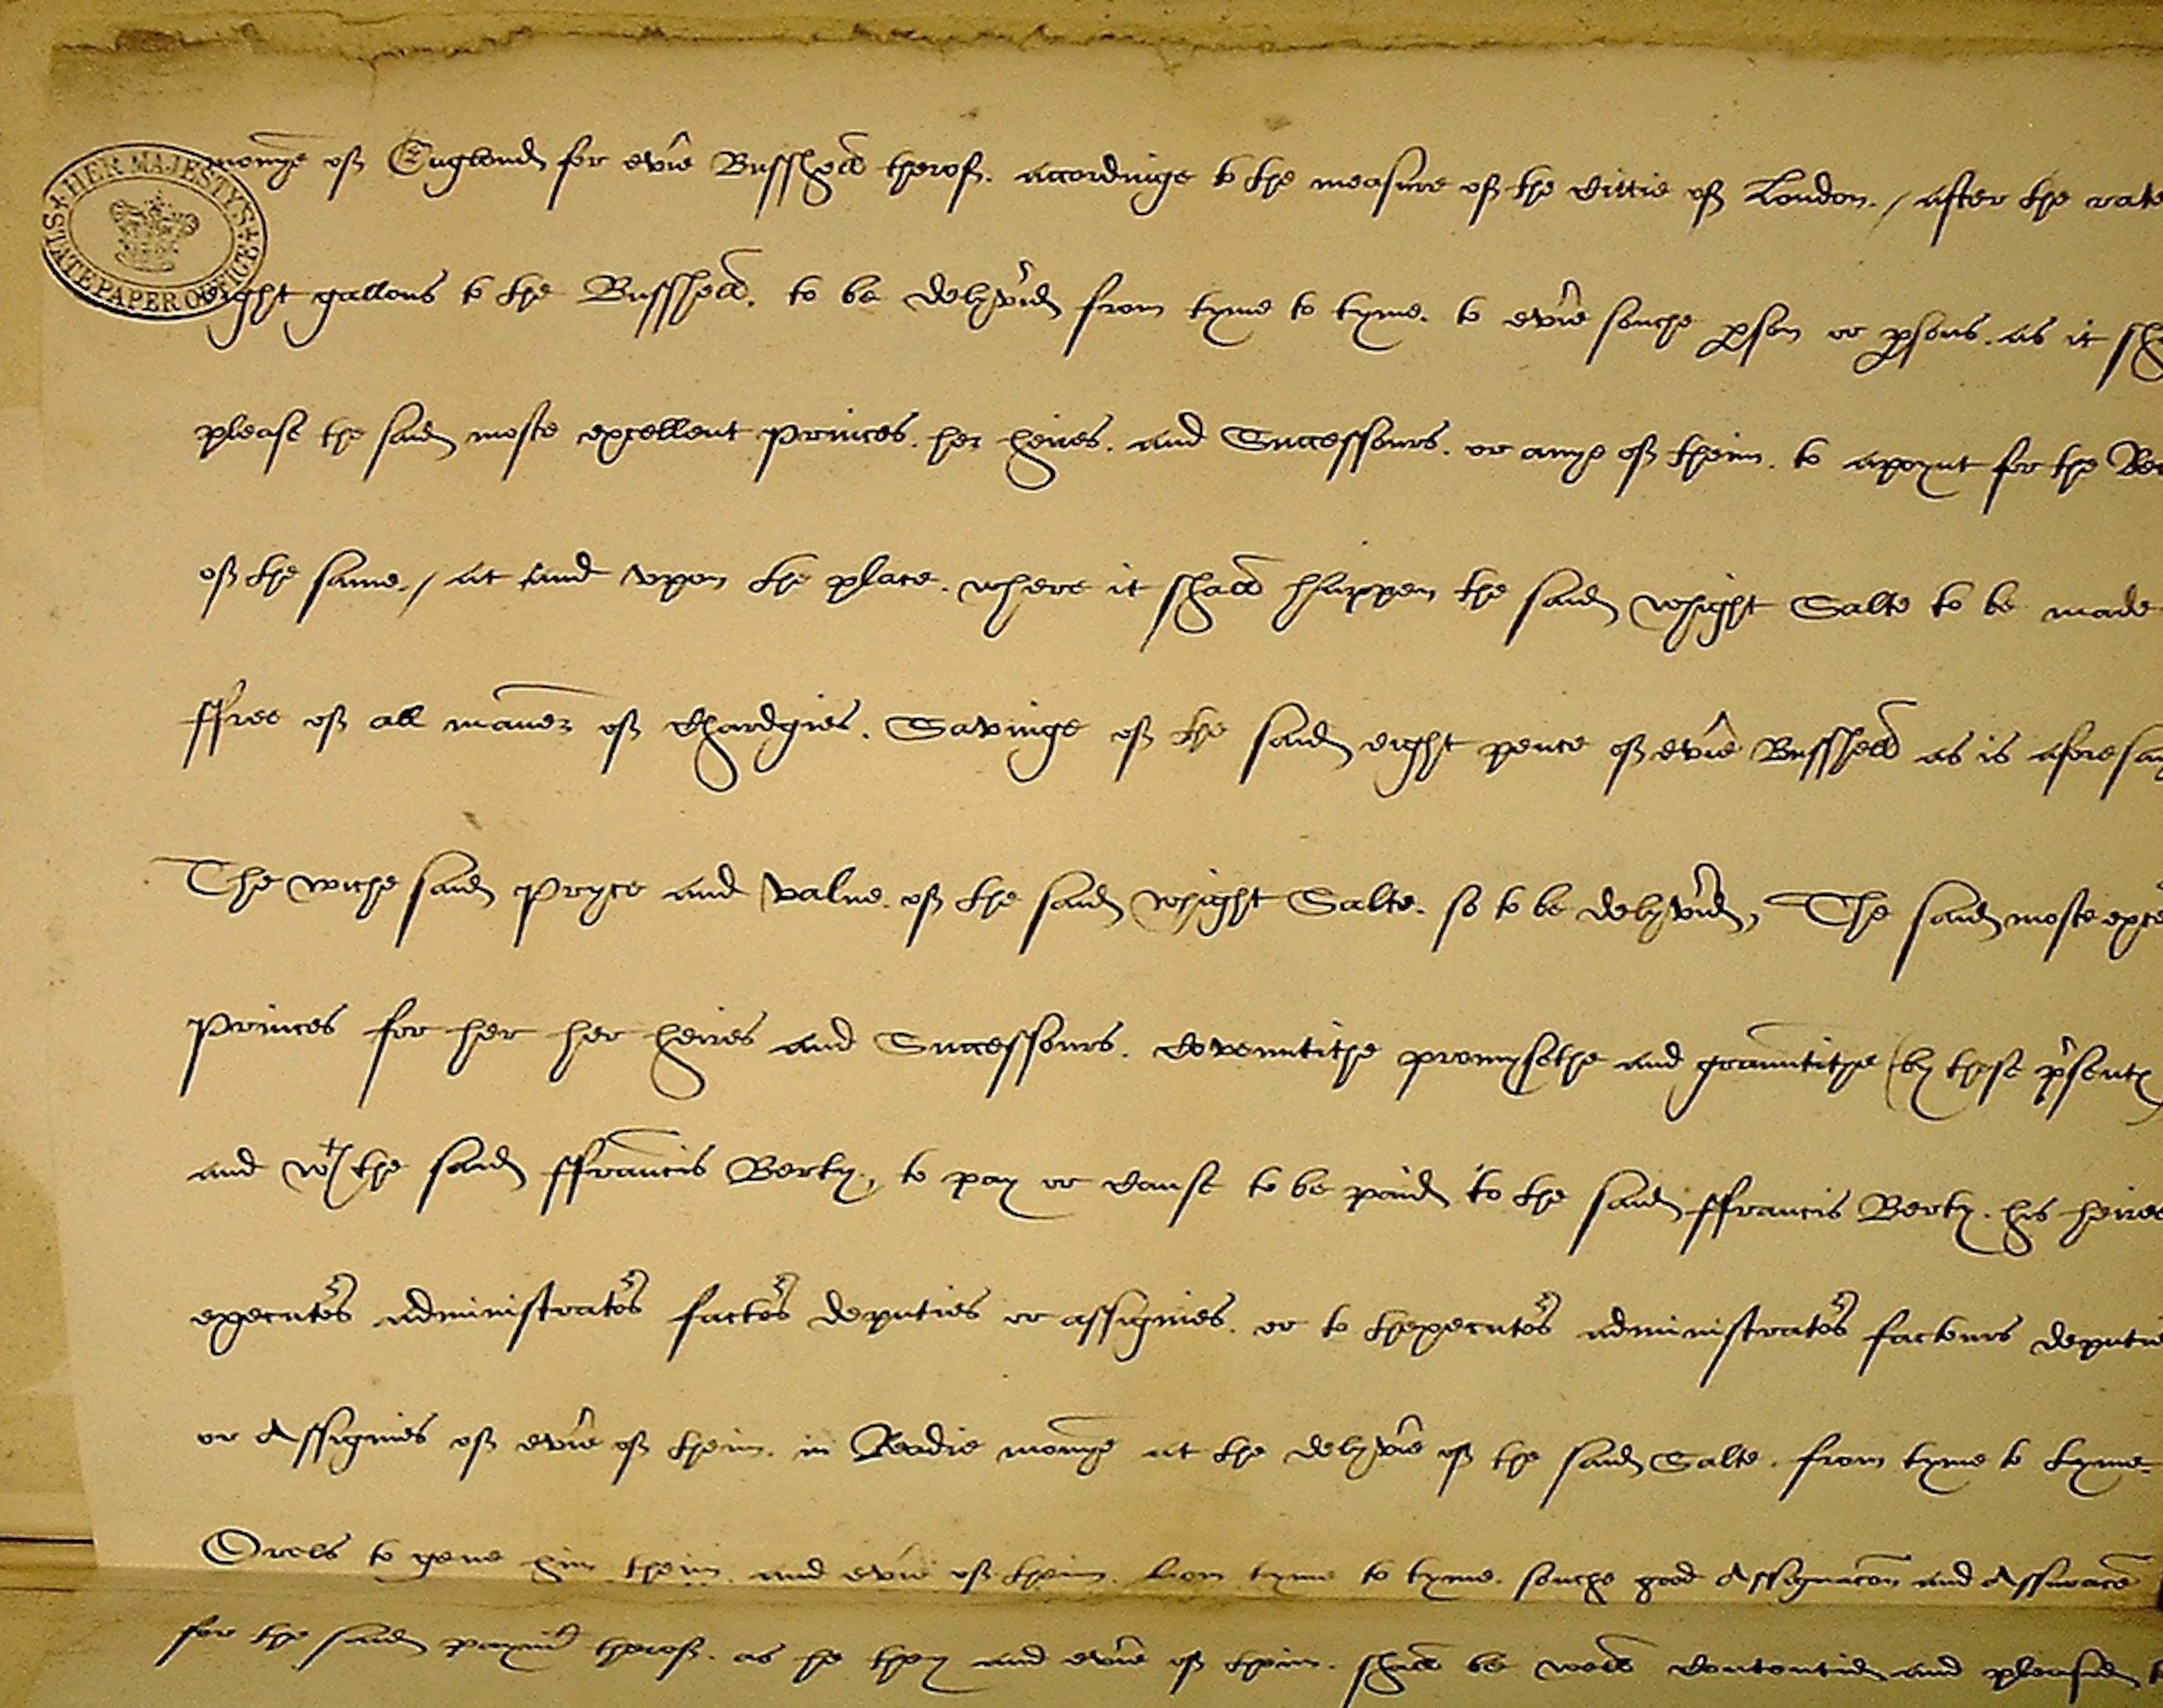 HER MAJESTY'S STATE PAPER OFFICE
monye off Englond for evĩe Busshell therof. accordinge to the measure off the Cittie off London. / after the rate
eight gallons to the Busshell. to be delyṽid from tyme to tyme. to evĩe souche ꝑson or ꝑsons. as it sh
please the said moste excellent princes. her heires. and Successours. or anye off theim. to apoynt for the Rec
off the same. / at and vpon the place. where it shall happen the said whight Salte to be made
ffree off all maner off Chardgies. Savinge off the said eight pence off evĩe Busshell as is aforesay
The wiche said pryce and value. off the said whight Salte. so to be delyṽid, The said moste exce
princes for her her heires and Successours. Covenntithe promysethe and grauntithe (by these p̃sentꝭ
and wᵗʰ the said ffrancis Berty, to pay or cause to be paid to the said ffrancis Berty. his heires
executoʳs administratoʳs factoʳs deputies or assignies. or to thexecutoʳs administratoʳs factours deputie
or Assignies off evĩe off theim. in Readie monye at the delyṽie off the said Salte. from tyme to tyme.
Orels to geue him theim. and evĩe off theim. from tyme to tyme. souche good Assignacõn and Assurãce
for the said paymᵗ therof. as he they and evĩe off theim. shall be well Contentid and pleasid t